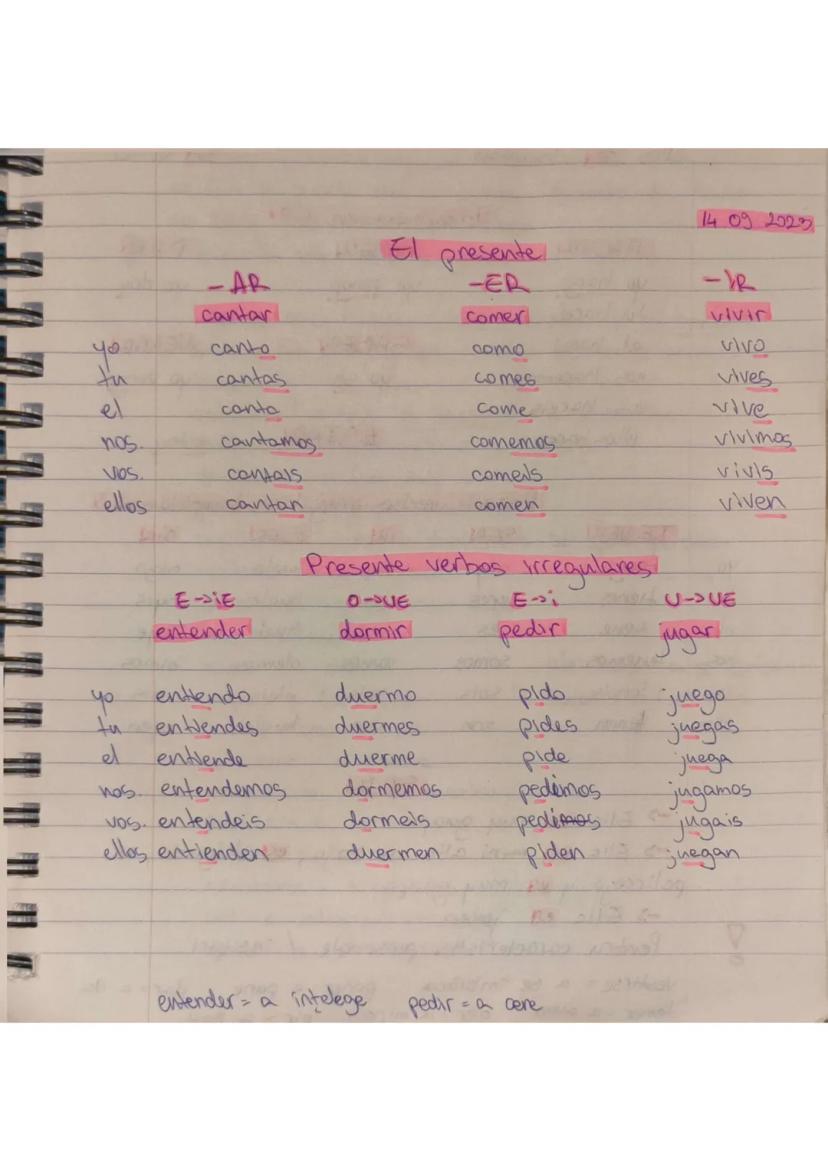 14 09 2023
El presente
-AR -ER -IR
cantar comer vivir
yo canto como vivo
tu cantas comes vives
el canta come vive
nos. cantamos comemos vivimos
vos. cantais comeis vivis
ellos cantan comen viven
Presente verbos irregulares
E->iE O->UE E->i U->UE
entender dormir pedir jugar
yo entiendo duermo pido juego
tu entiendes duermes pides juegas
el entiende duerme pide juega
nos. entendemos dormemos pedimos jugamos
vos. entendeis dormeis jugais
ellos entienden duermen piden juegan
entender = a înțelege pedir = a cere